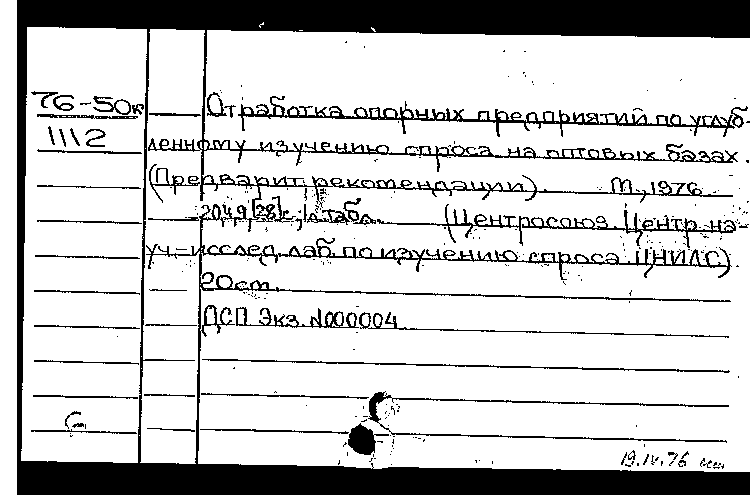 76-50к
1112
Отработка опорных предприятий по углуб-
ленному изучению спроса на оптовых базах.
(Предварит. рекомендации). М., 1976.
[28] с., табл. (Центросоюз. Центр. на-
уч.-исслед. лаб. по изучению спроса ЦНИЛС)
20 см.
ДСП Экз. №000004
19.IV.76